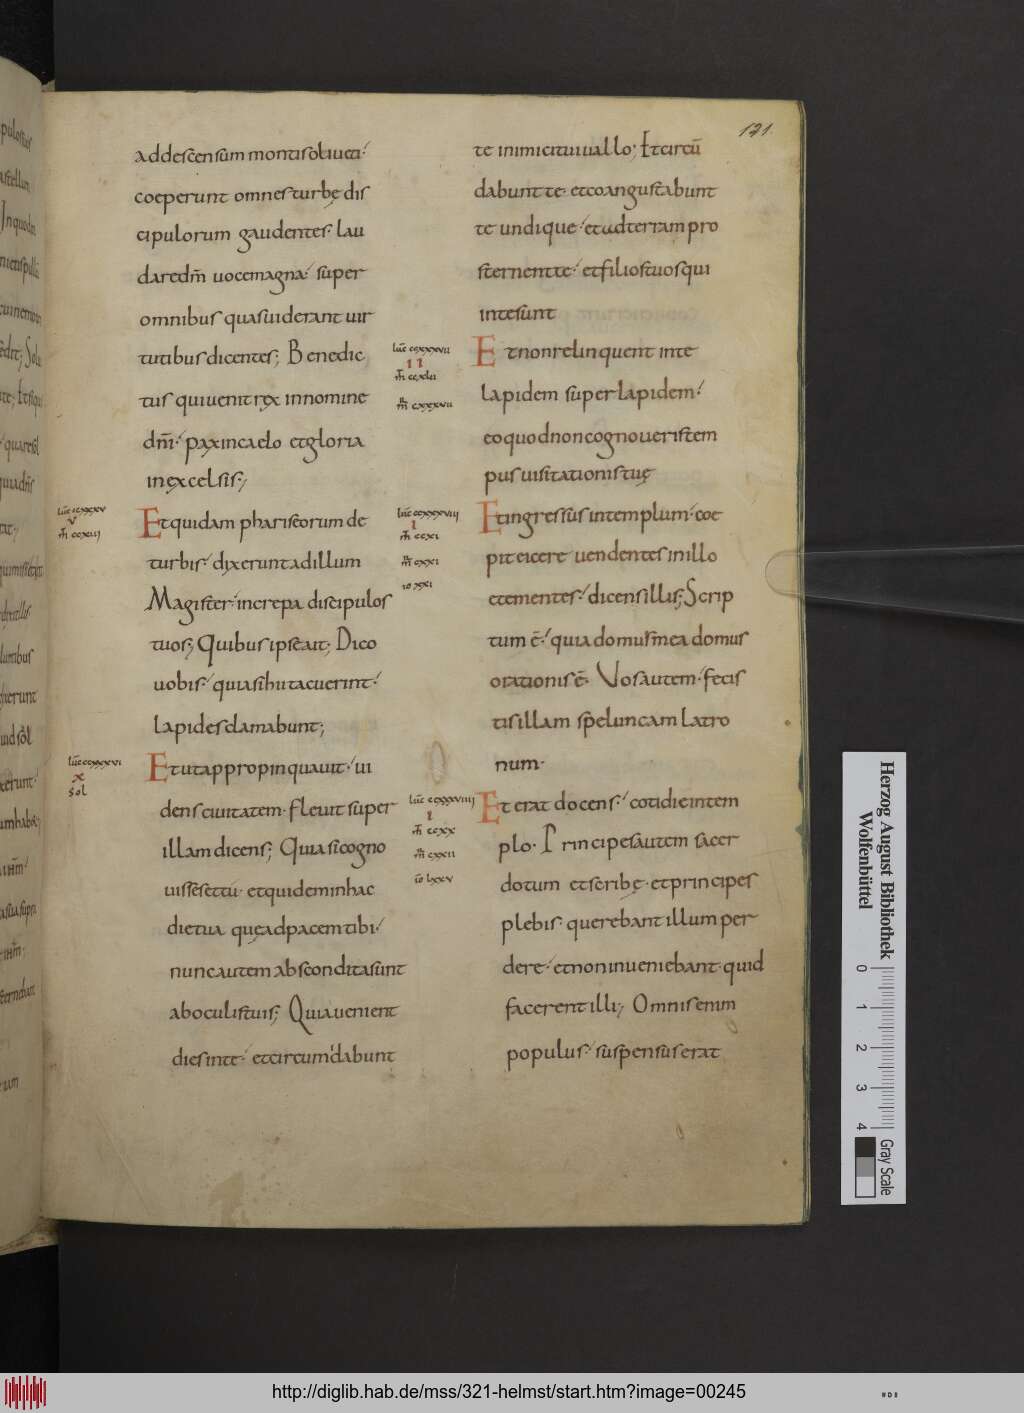 121.
ad descensum montis oliueti·
coeperunt omnes turbę dis
cipulorum gaudentes· lau
dare dm̄ uoce magna· super
omnibus quas uiderant uir
tutibus dicentes; Benedic
tus qui uenit rex in nomine
dm̄i· pax in caelo et gloria
in excelsis;
Et quidam phariseorum de
turbis· dixerunt ad illum
Magister· increpa discipulos
tuos; Quibus ipse ait; Dico
uobis· quia si hii tacuerint·
lapides clamabunt;
Et ut appropinquauit· ui
dens ciuitatem· fleuit super
illam dicens; Quia si cogno
uisses et tu· et quidem in hac
die tua quę ad pacem tibi·
nunc autem abscondita sunt
ab oculis tuis; Quia uenient
dies in te· et circumdabunt
te inimici tui uallo; Et circū
dabunt te· et coangustabunt
te undique· et ad terram pro
sternent te· et filios tuos qui
in te sunt
Et non relinquent in te
lapidem super lapidem·
eo quod non cognoueris tem
pus uisitationis tuę
Et ingressus in templum· coe
pit eicere uendentes in illo
et ementes· dicens illis; Scrip
tum ē· quia domus mea domus
orationis ē· Vos autem· fecis
tis illam speluncam latro
num·
Et erat docens· cotidie in tem
plo· Principes autem sacer
dotum et scribę· et principes
plebis· querebant illum per
dere· et non inueniebant· quid
facerent illi; Omnis enim
populus· suspensus erat
Herzog August Bibliothek
Wolfenbüttel
0 1 2 3 4
Gray Scale
http://diglib.hab.de/mss/321-helmst/start.htm?image=00245